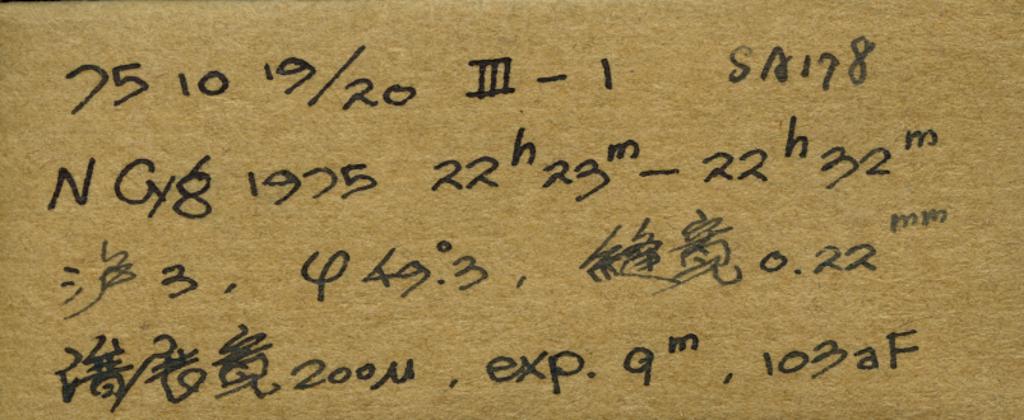 75 10 19/20 III - 1 SA178
N Cyg 1975 22ʰ23ᵐ - 22ʰ32ᵐ
3, φ 49°.3, 缝宽 0.22ᵐᵐ
谱展宽 200μ, exp. 9ᵐ, 103aF